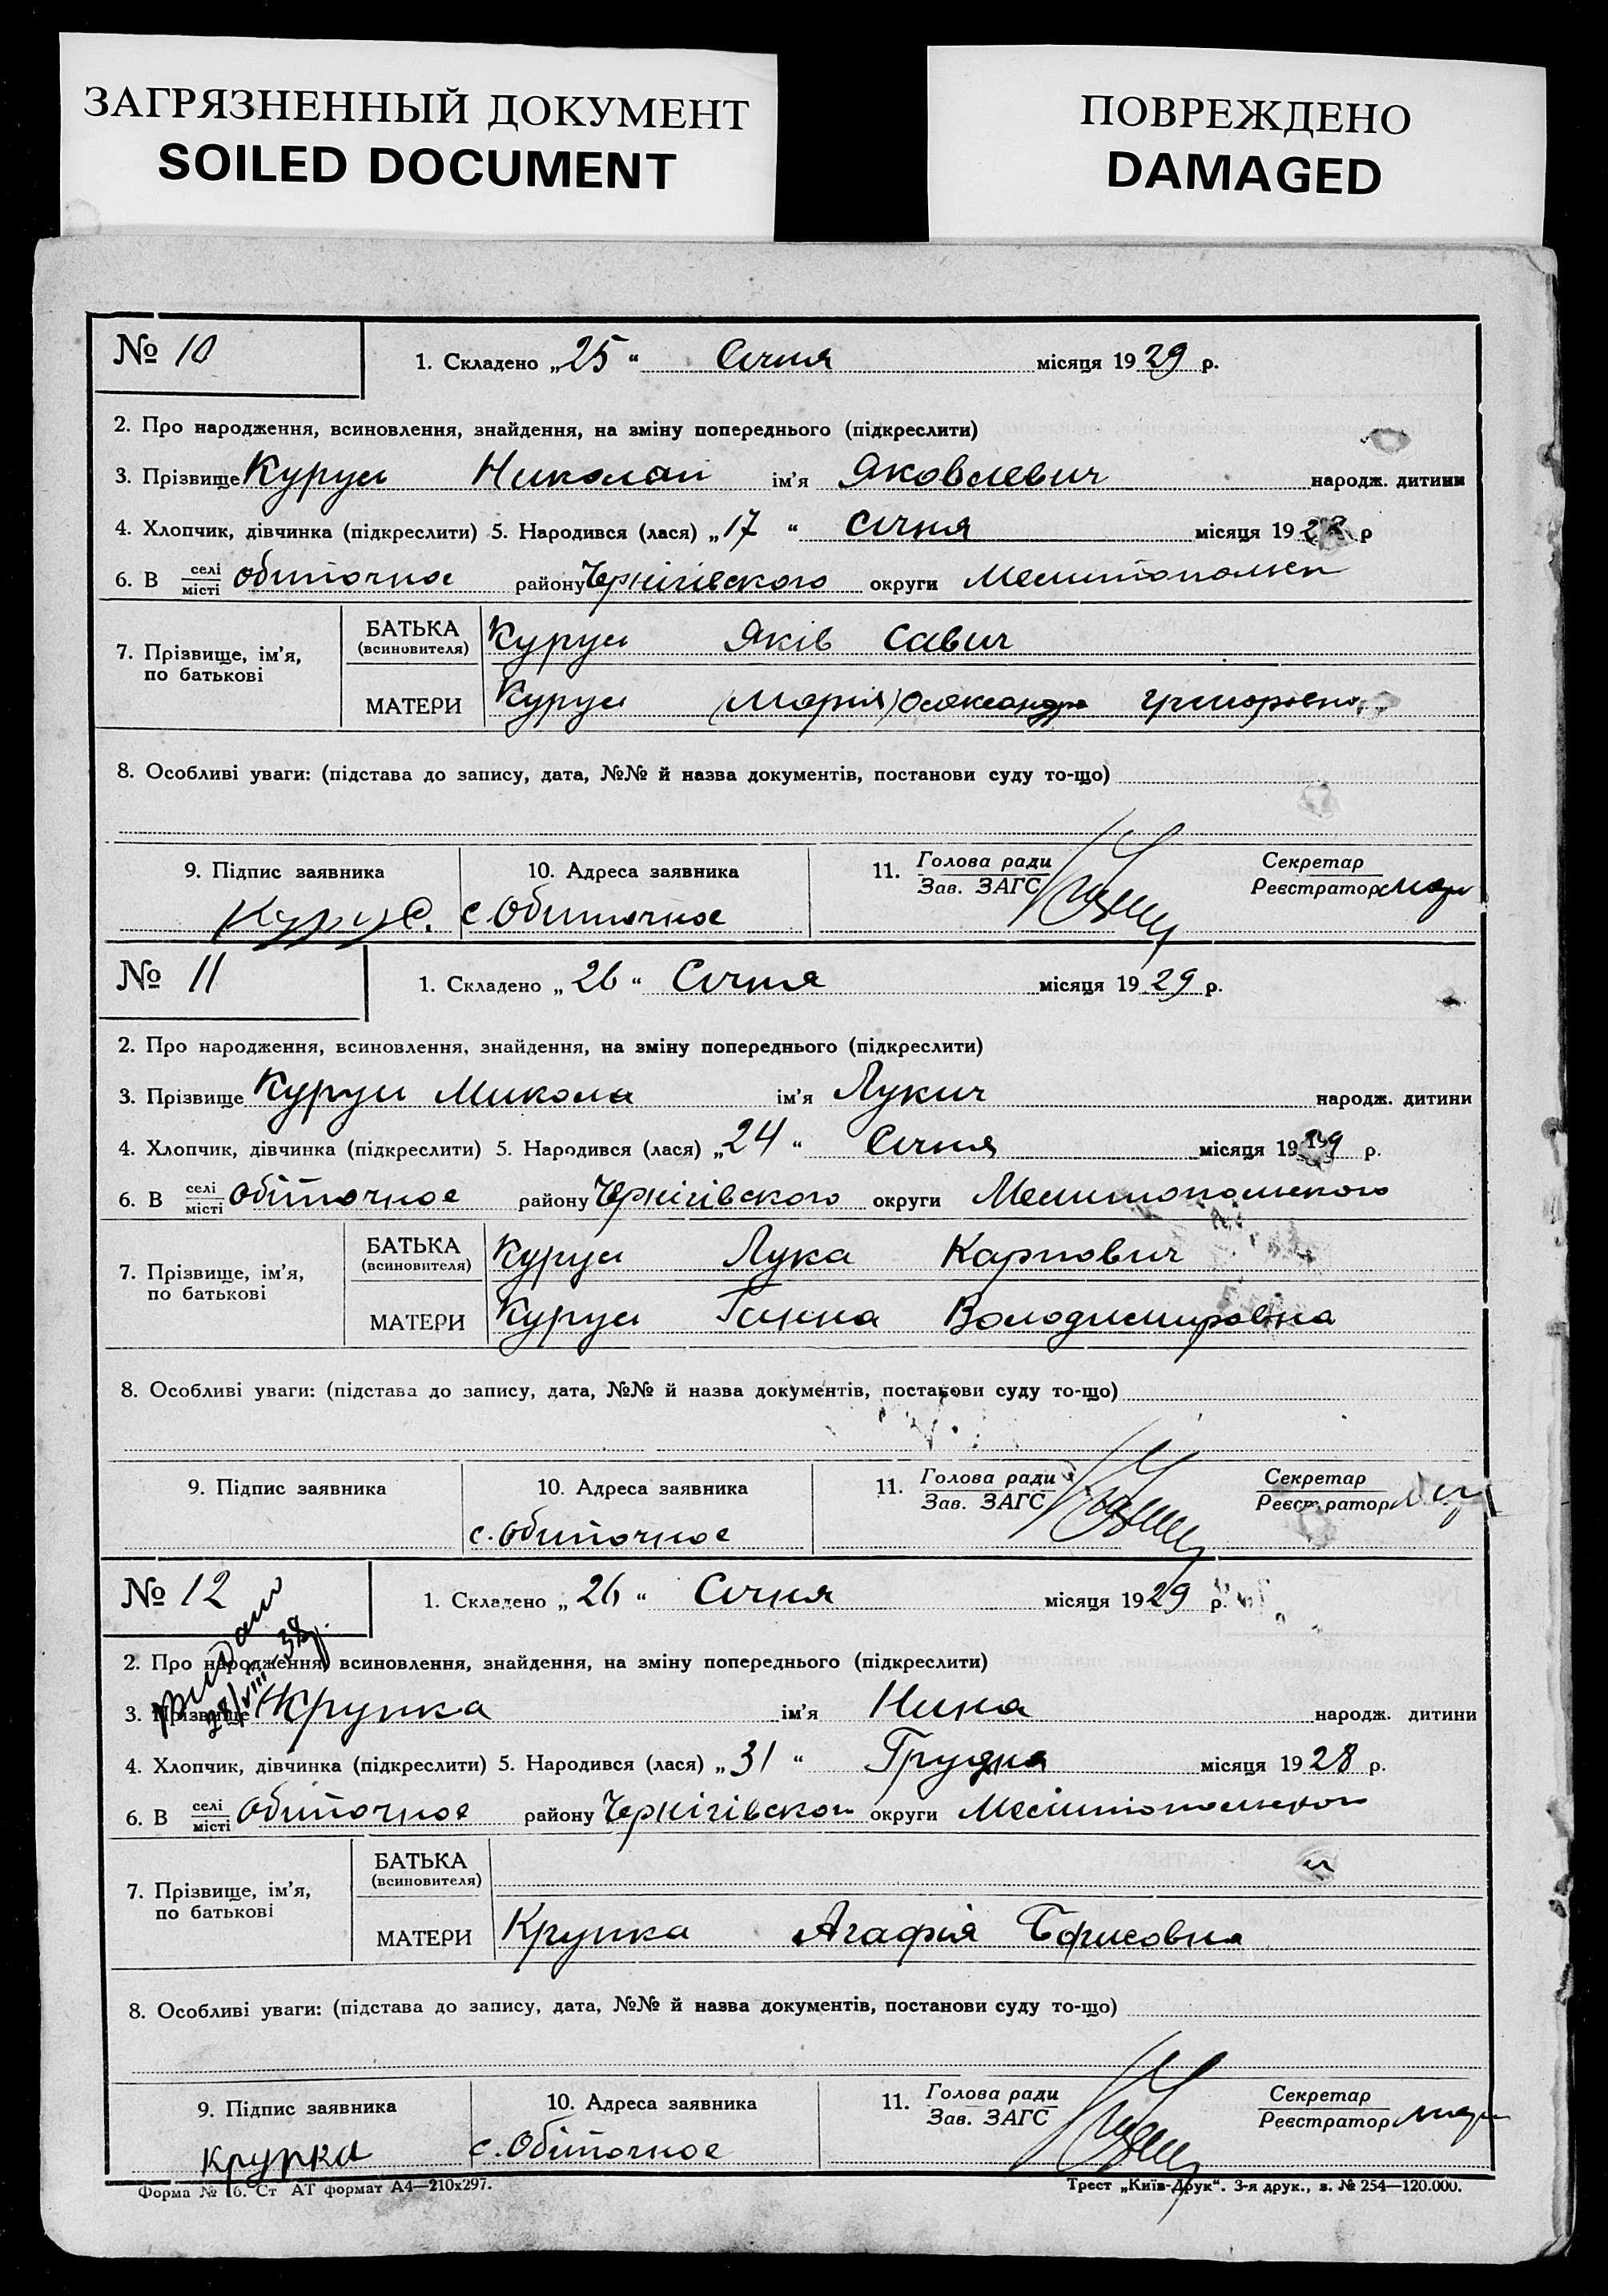 ЗАГРЯЗНЕННЫЙ ДОКУМЕНТ
SOILED DOCUMENT
ПОВРЕЖДЕНО
DAMAGED
№ 10
1. Складено „25“ Січня місяця 1929 р.
2. Про народження, всиновлення, знайдення, на зміну попереднього (підкреслити)
3. Прізвище Куруц Николай ім’я Яковлевич народж. дитини
4. Хлопчик, дівчинка (підкреслити) 5. Народився (лася) „17“ січня місяця 192 р
6. В селі місті Обиточное району Чернігівского округи
7. Прізвище, ім’я, по батькові
БАТЬКА (всиновителя) Куруц Яків Савич
МАТЕРИ Куруц (Марія) Олександра Григоровна
8. Особливі уваги: (підстава до запису, дата, №№ й назва документів, постанови суду то-що)
9. Підпис заявника
10. Адреса заявника
11. Голова ради Зав. ЗАГС
Секретар Реєстратор
с Обиточное
№ 11
1. Складено „26“ Січня місяця 1929 р.
2. Про народження, всиновлення, знайдення, на зміну попереднього (підкреслити)
3. Прізвище Куруц Микола ім’я Лукич народж. дитини
4. Хлопчик, дівчинка (підкреслити) 5. Народився (лася) „24“ Січня місяця 1929 р.
6. В селі місті Обіточное району Чернігівского округи Мелитопольского
7. Прізвище, ім’я, по батькові
БАТЬКА (всиновителя) Куруц Лука Карпович
МАТЕРИ Куруц Ганна Володимировна
8. Особливі уваги: (підстава до запису, дата, №№ й назва документів, постанови суду то-що)
9. Підпис заявника
10. Адреса заявника
11. Голова ради Зав. ЗАГС
Секретар Реєстратор
с. Обиточное
№ 12
1. Складено „26“ Січня місяця 1929 р.
2. Про народження, всиновлення, знайдення, на зміну попереднього (підкреслити)
3. Прізвище Крупка ім’я Нина народж. дитини
4. Хлопчик, дівчинка (підкреслити) 5. Народився (лася) „31“ Грудня місяця 1928 р.
6. В селі місті Обиточное району Чернігівског округи
7. Прізвище, ім’я, по батькові
БАТЬКА (всиновителя)
МАТЕРИ Крупка Агафія Борисовна
8. Особливі уваги: (підстава до запису, дата, №№ й назва документів, постанови суду то-що)
9. Підпис заявника
10. Адреса заявника
11. Голова ради Зав. ЗАГС
Секретар Реєстратор
Крупка
с. Обіточное
Форма № 16. Ст АТ формат А4—210х297.
Трест „Київ-Друк“. 3-я друк., з. № 254—120.000.